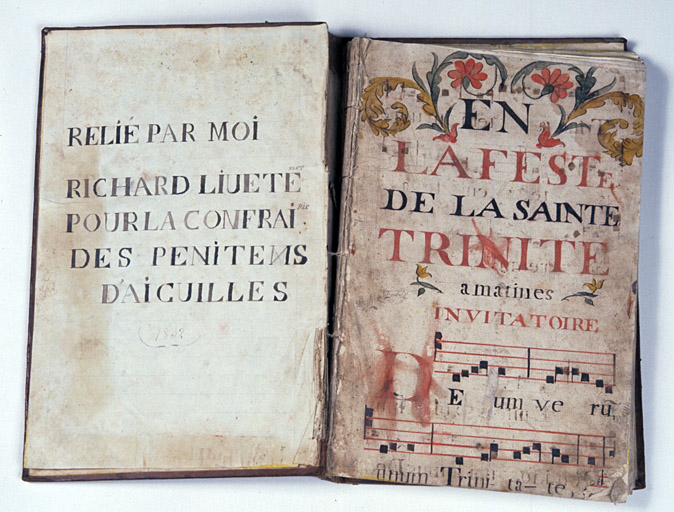 RELIÉ PAR MOI
RICHARD LIUETE
POUR LA CONFRAI
DES PENITENS
D'AIGUILLES
EN
LA FESTE
DE LA SAINTE
TRINITE
a matines
INVITATOIRE
DE um ve ru
unum Trini ta te